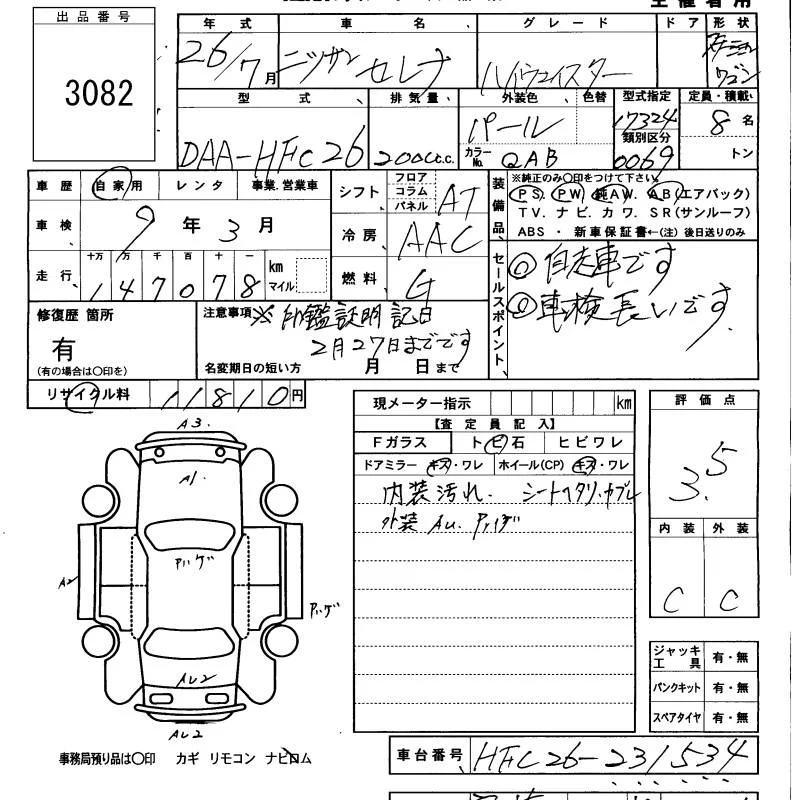 出品番号
3082
年式 車名 グレード ドア 形状
26/7月 ニッサン セレナ ハイウェイスター ステーションワゴン
型式 排気量、 外装色 色替 型式指定 定員・積載、
DAA-HFC26 2000c.c. パール 17324 8名
類別区分
カラーNo. QAB 0069 トン
車歴 自家用 レンタ 事業.営業車
シフト、 フロア コラム パネル AT
装備品、
※純正のみ○印をつけて下さい。
PS. PW. 純AW. AB(エアバック)
TV. ナビ. カワ. SR(サンルーフ)
ABS ・ 新車保証書←(注) 後日送りのみ
車検 9年3月
冷房 AAC
走行、 十万 万 千 百 十 一
147078 km マイル
燃料 G
セールスポイント、
◎自走車です
◎車検長いです。
修復歴 箇所
有
(有の場合は○印を)
注意事項 ※印鑑証明記日
2月27日までです
名変期日の短い方 月 日まで
リサイクル料 11810円
現メーター指示 km
【査定員記入】
Fガラス トビ石 ヒビワレ
ドアミラー キズ・ワレ ホイール(CP) キズ・ワレ
内装汚れ. シートヘタリ.カブレ
外装 AU. Pハゲ
評価点
3.5
内装 外装
C C
A3.
A1
Pハゲ
A2
Pハゲ
AU2
AU2
ジャッキ工具 有・無
パンクキット 有・無
スペアタイヤ 有・無
事務局預り品は○印 カギ リモコン ナビロム
車台番号 HFC26-231534